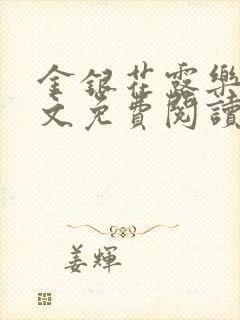 金銀花露樂
文免費閱讀
姜輝